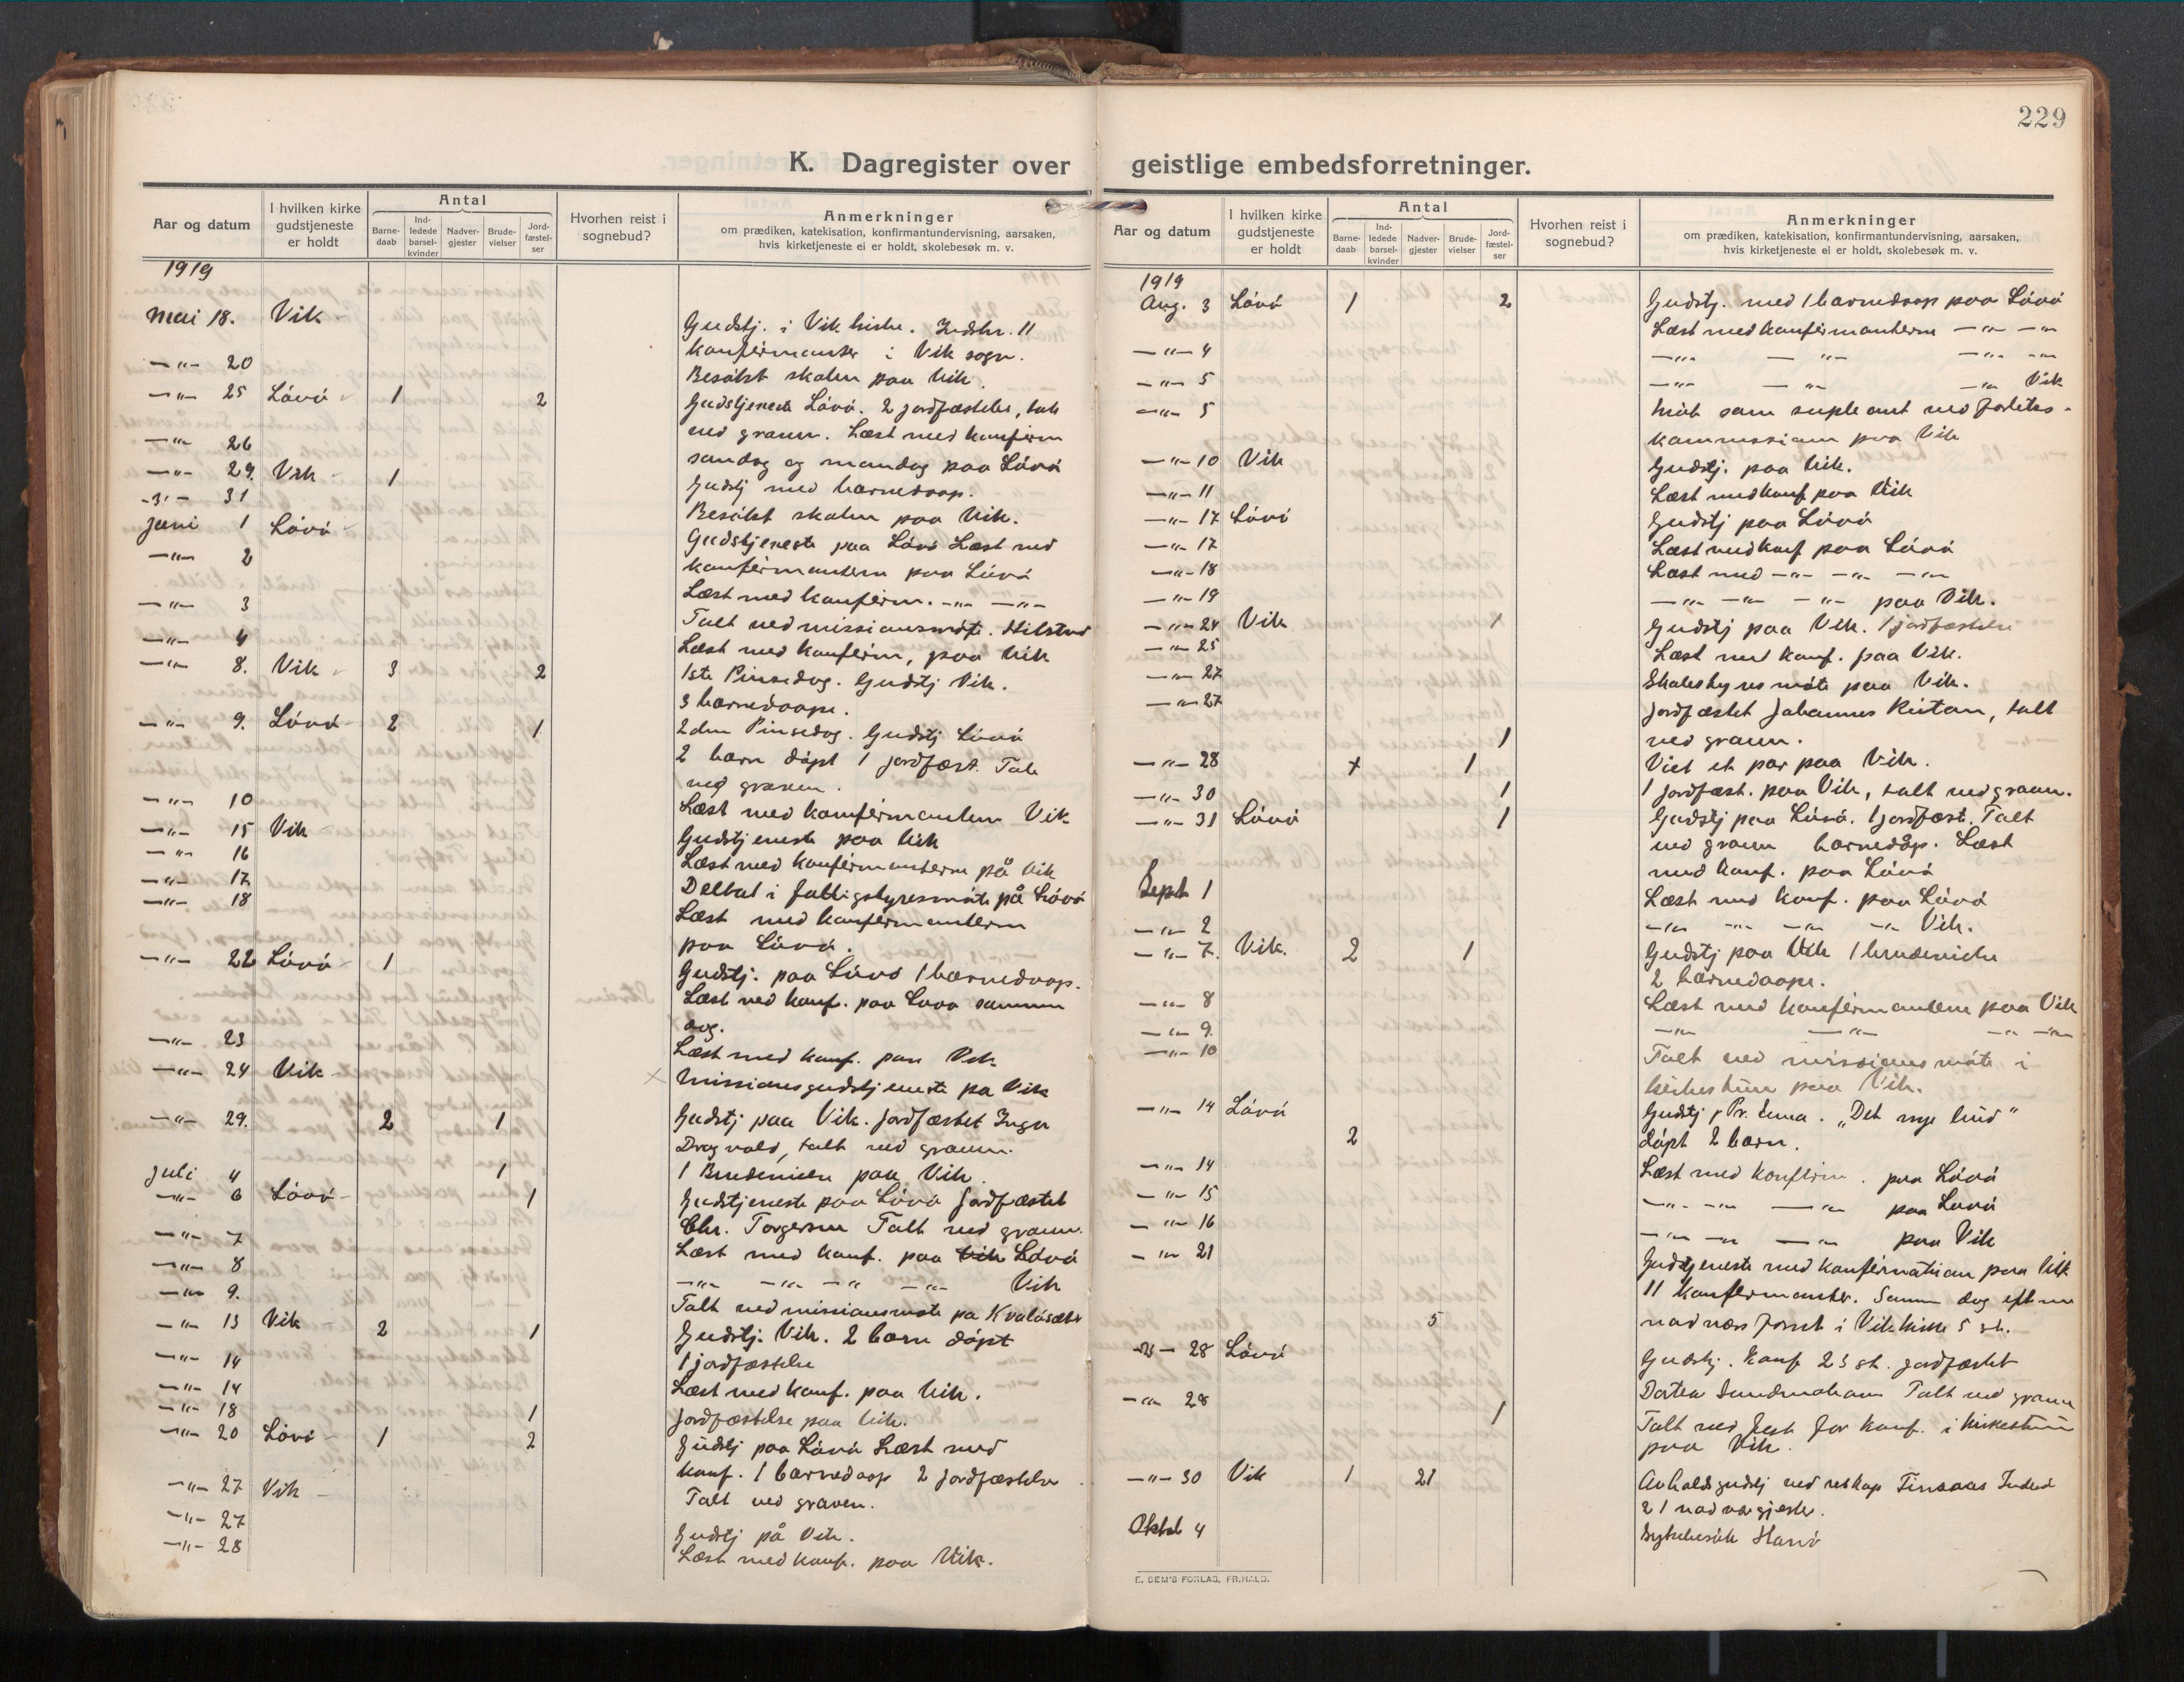 229
K. Dagregister over
geistlige embedsforretninger.
Aar og datum
I hvilken kirke gudstjeneste er holdt
Antal
Barne-daab
Ind-ledede barsel-kvinder
Nadver-gjester
Brude-vielser
Jord-fæstel-ser
Hvorhen reist i sognebud?
Anmerkninger
om prædiken, katekisation, konfirmantundervisning, aarsaken,
hvis kirketjeneste ei er holdt, skolebesøk m. v.
1919
Mai 18. Vik Gudstj. i Vik kirke. Indskr. 11
konfirmanter i Vik sogn.
—"— 20 Besökt skolen paa Vik.
—"— 25 Lövö 1 2 Gudstjeneste Lövö. 2 jordfæstelse, tale
ved graven. Læst med konfirm
—"— 26 søndag og mandag paa Lövö
—"— 29. Vik 1 Gudstj med barnedaap.
—"— 31 Besökt skolen paa Vik.
Juni 1 Lövö Gudstjeneste paa Lövö Læst med
—"— 2 konfirmantern paa Lövö
Læst med konfirm. —"— —"—
—"— 3 Talt ved missionsmöte. Hilstad
—"— 4 Læst med konfirm, paa Vik
—"— 8. Vik 3 2 1ste Pinsedag. Gudstj Vik.
3 barnedaape.
—"— 9. Lövö 2 1 2den Pinsedag. Gudstj Lövö
2 barn döpt 1 jordfæst. Tale
ved graven.
—"— 10 Læst med konfirmanten Vik
—"— 15 Vik Gudstjeneste paa Vik
—"— 16 Læst med konfirmanterne på Vik
—"— 17 Deltat i fattigstyresmöte på Lövö
—"— 18 Læst med konfirmanterne
paa Lövö.
—"— 22 Lövö 1 Gudstj. paa Lövö 1 barnedaap.
Læst med konf. paa Lövö samme
dag.
—"— 23 Læst med konf. paa Vik
—"— 24 Vik Missionsgudstjeneste pa Vik
—"— 29. 2 1 Gudstj paa Vik. Jordfæstet Inga
Dragvold, talt ved graven.
Juli 4 1 1 Brudevielse paa Vik.
—"— 6 Lövö 1 Gudstjeneste paa Lövö Jordfæstet
Chr. Torgersen Talt ved graven.
—"— 7 Læst med konf. paa Vik Lövö
—"— 8 —"— —"— —"— —"— Vik
—"— 9. Talt ved missionsmöte pa Kvalösæter
—"— 13 Vik 2 1 Gudstj. Vik. 2 barn döpt
1 jordfæstelse
—"— 14 Læst med konf. paa Vik.
—"— 14
—"— 18 1 Jordfæstelse paa Vik.
—"— 20 Lövö 1 2 Gudstj paa Lövö Læst med
konf. 1 barnedaap 2 jordfæstelse
Talt ved graven.
—"— 27 Vik
—"— 27 Gudstj på Vik.
—"— 28 Læst med konf. paa Vik.
Aar og datum
I hvilken kirke gudstjeneste er holdt
Antal
Barne-daab
Ind-ledede barsel-kvinder
Nadver-gjester
Brude-vielser
Jord-fæstel-ser
Hvorhen reist i sognebud?
Anmerkninger
om prædiken, katekisation, konfirmantundervisning, aarsaken,
hvis kirketjeneste ei er holdt, skolebesøk m. v.
1919
Aug. 3 Lövö 1 2 Gudstj. med 1 barnedaap paa Lövö
Læst med konfirmanterne —"— —"—
—"— 4 —"— —"— —"— —"—
—"— 5 —"— —"— —"— Vik
—"— 5 Möt som supleant ved
kommission paa Vik
—"— 10 Vik Gudstj. paa Vik.
—"— 11 Læst med konf paa Vik
—"— 17 Lövö Gudstj paa Lövö
—"— 17 Læst med konf paa Lövö
—"— 18 Læst med —"— —"— —"—
—"— 19 —"— —"— —"— paa Vik.
—"— 24 Vik 1 Gudstj paa Vik. 1 jordfæstelse
—"— 25 Læst med konf. paa Vik.
—"— 27 Skolestyresmöte paa Vik.
—"— 27 Jordfæstet Johannes Rutan, talt
1 ved graven.
—"— 28 + 1 Viet et par paa Vik.
—"— 30 1 1 jordfæst. paa Vik, talt ved graven.
—"— 31 Lövö 1 Gudstj paa Lövö. 1 jordfæst. Talt
ved graven barnedåp. Læst
med konf. paa Lövö
Sept 1 Læst med konf. paa Lövö
—"— 2 —"— —"— —"— —"— Vik.
—"— 7. Vik. 2 1 Gudstj paa Vik 1 brudevielse
2 barnedaape.
—"— 8 Læst med konfirmantene paa Vik
—"— 9. —"— —"— —"— —"—
—"— 10 Talt ved missionsmöte i
kirkestuen paa Vik.
—"— 14 Lövö Gudstj Pr. . „Det nye liv"
2 döpt 2 barn.
—"— 14 Læst med konfirm. paa Lövö
—"— 15 —"— —"— —"— paa Lövö
—"— 16 —"— —"— —"— paa Vik
—"— 21 Gudstjeneste med konfirmation paa Vik
11 konfirmanter. Samme dag
5 i Vik kirke 5 st.
—"— 28 Lövö Gudstj. Konf 23 st. jordfæstet
Dortea Talt ved graven
—"— 28 1 Talt ved fest for konf. i kirkestuen
paa Vik.
—"— 30 Vik 1 21 ved
21 nadvergjester.
Oktob 4 Sykebesök
E. SEM'S FORLAG, FR.HALD.